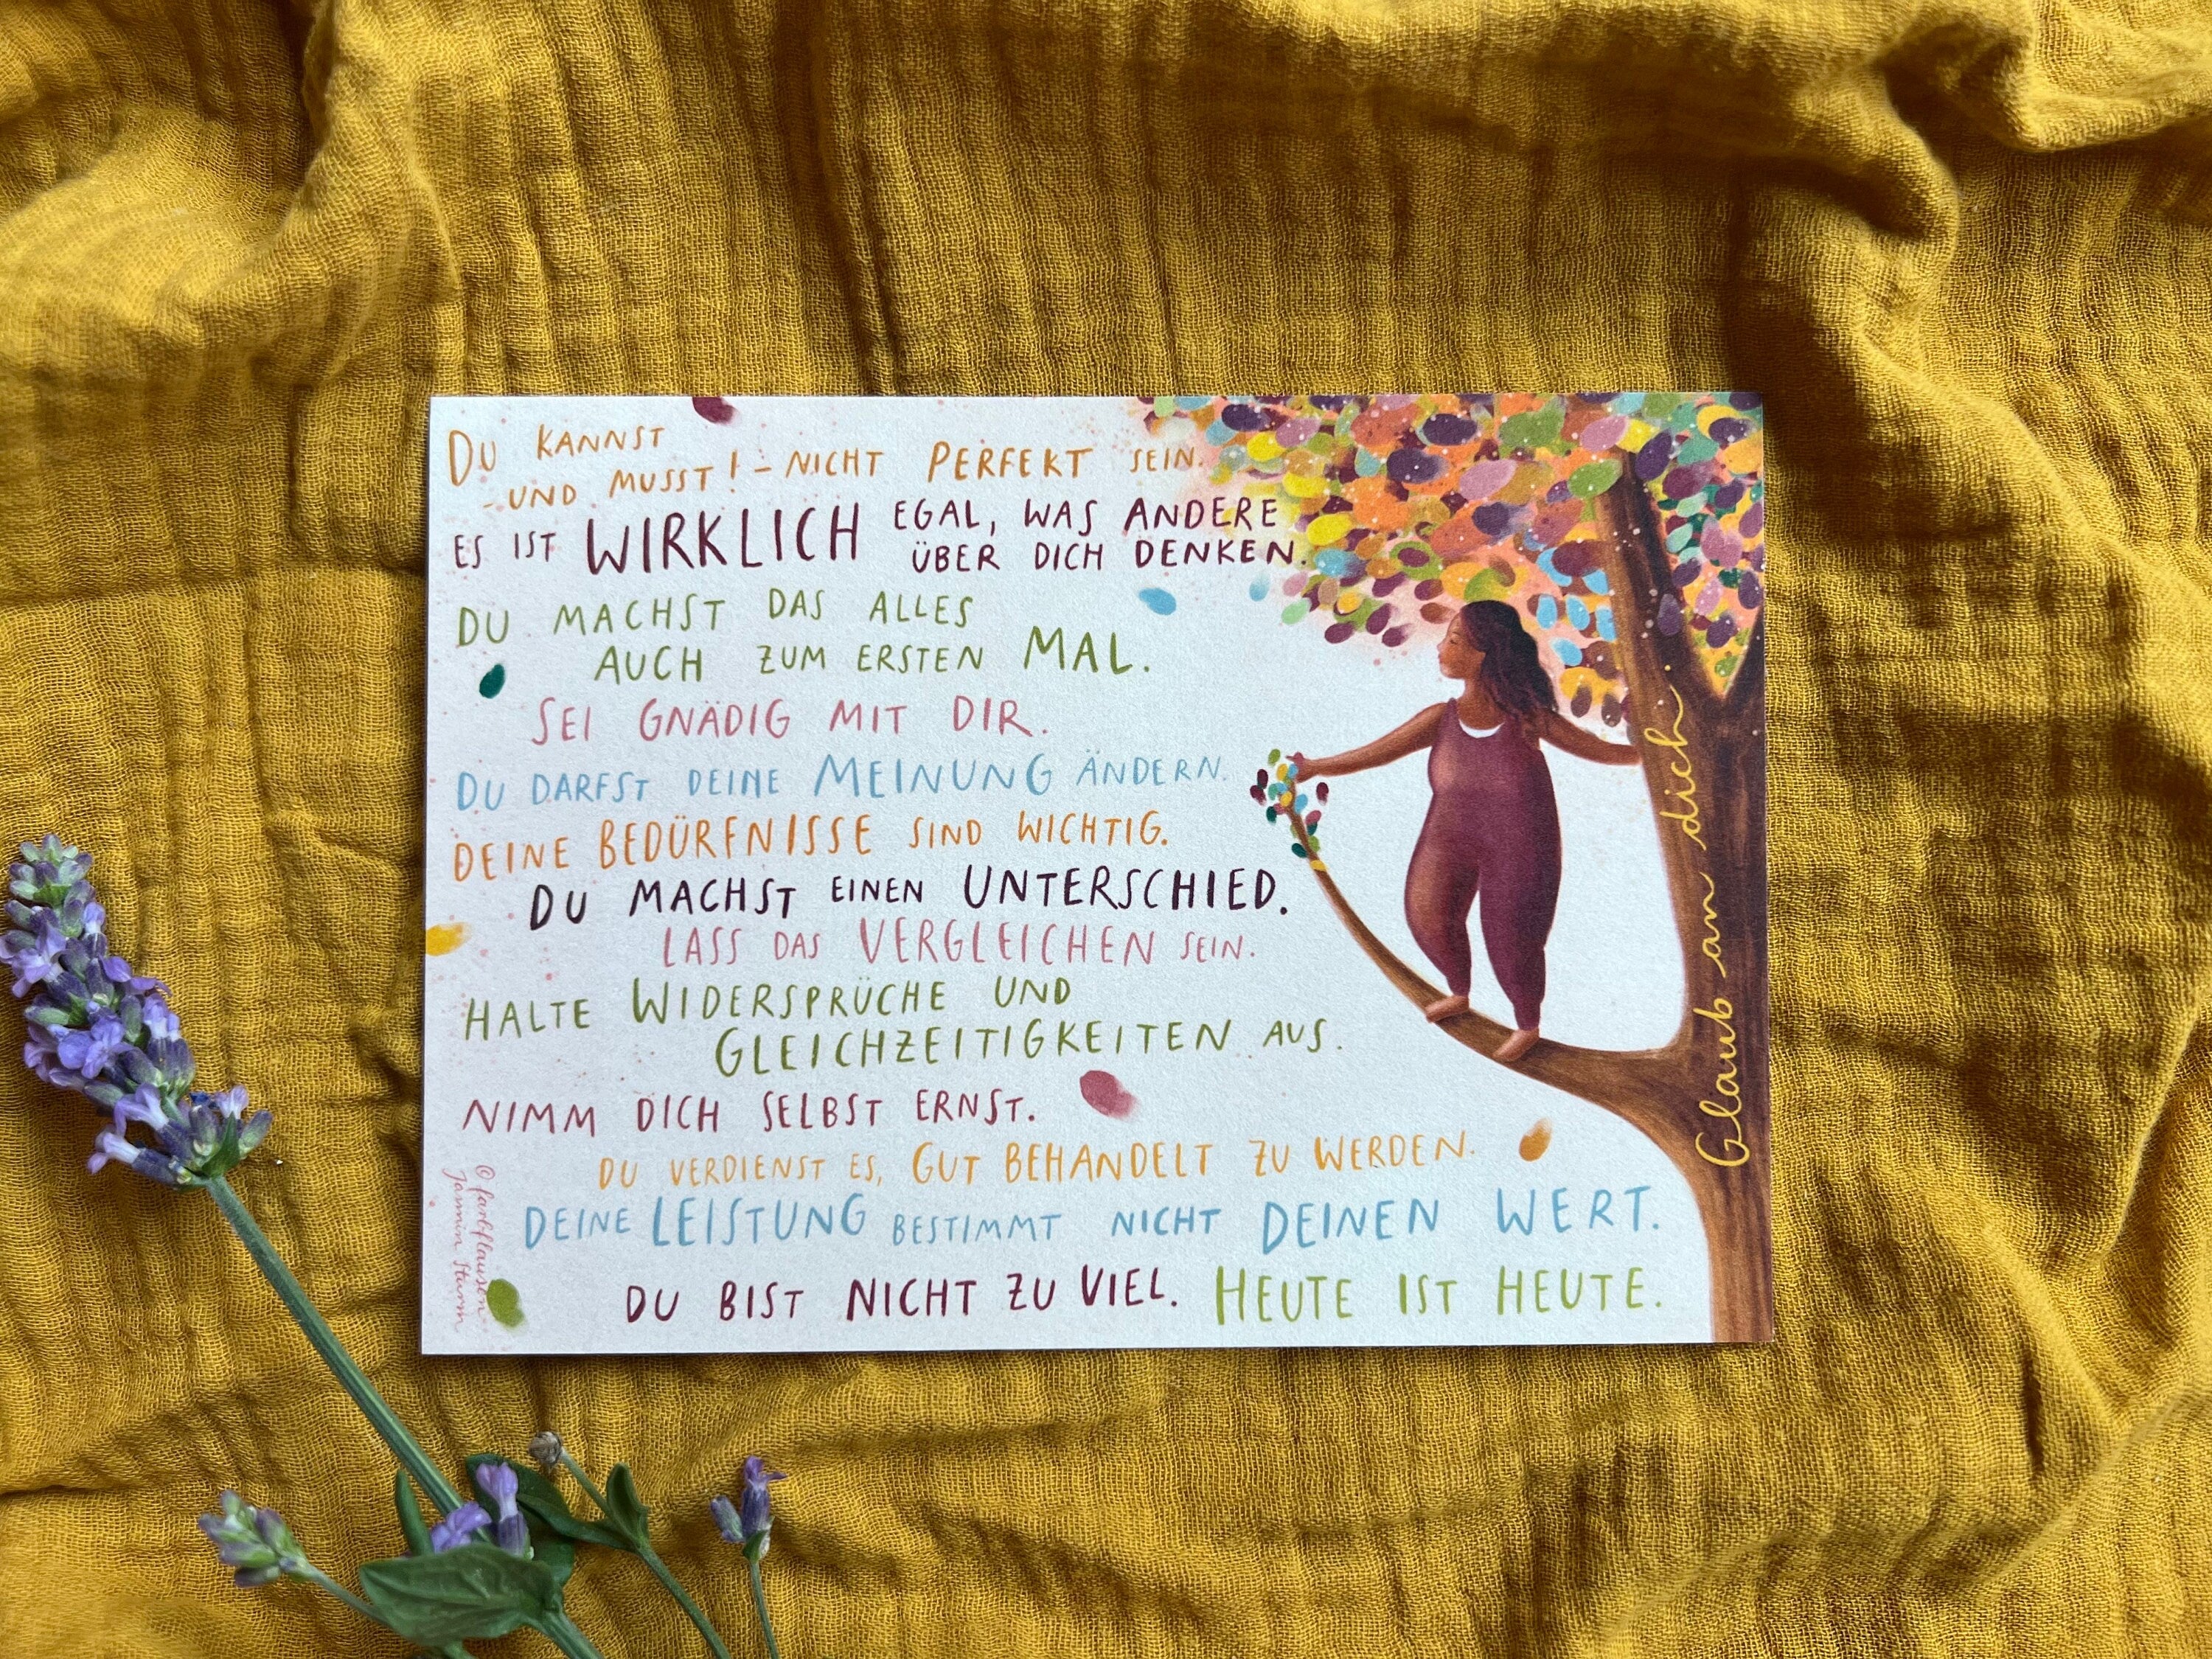 DU KANNST
- UND MUSST! - NICHT PERFEKT SEIN.
ES IST WIRKLICH EGAL, WAS ANDERE
ÜBER DICH DENKEN.
DU MACHST DAS ALLES
AUCH ZUM ERSTEN MAL.
SEI GNÄDIG MIT DIR.
DU DARFST DEINE MEINUNG ÄNDERN.
DEINE BEDÜRFNISSE SIND WICHTIG.
DU MACHST EINEN UNTERSCHIED.
LASS DAS VERGLEICHEN SEIN.
HALTE WIDERSPRÜCHE UND
GLEICHZEITIGKEITEN AUS.
NIMM DICH SELBST ERNST.
DU VERDIENST ES, GUT BEHANDELT ZU WERDEN.
DEINE LEISTUNG BESTIMMT NICHT DEINEN WERT.
DU BIST NICHT ZU VIEL. HEUTE IST HEUTE.
Glaub an dich.
© farbflausen
Jasmin Sturm